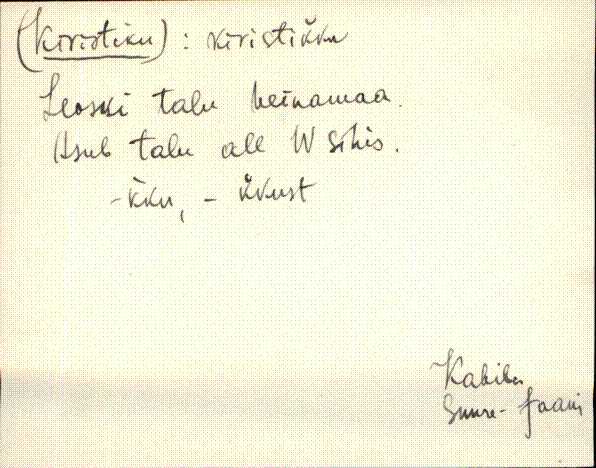 (Kiristiku) : kiristikku
Leoski talu heinamaa.
Asub talu all W sihis.
-ikku, - ikkust
Suure-Jaani